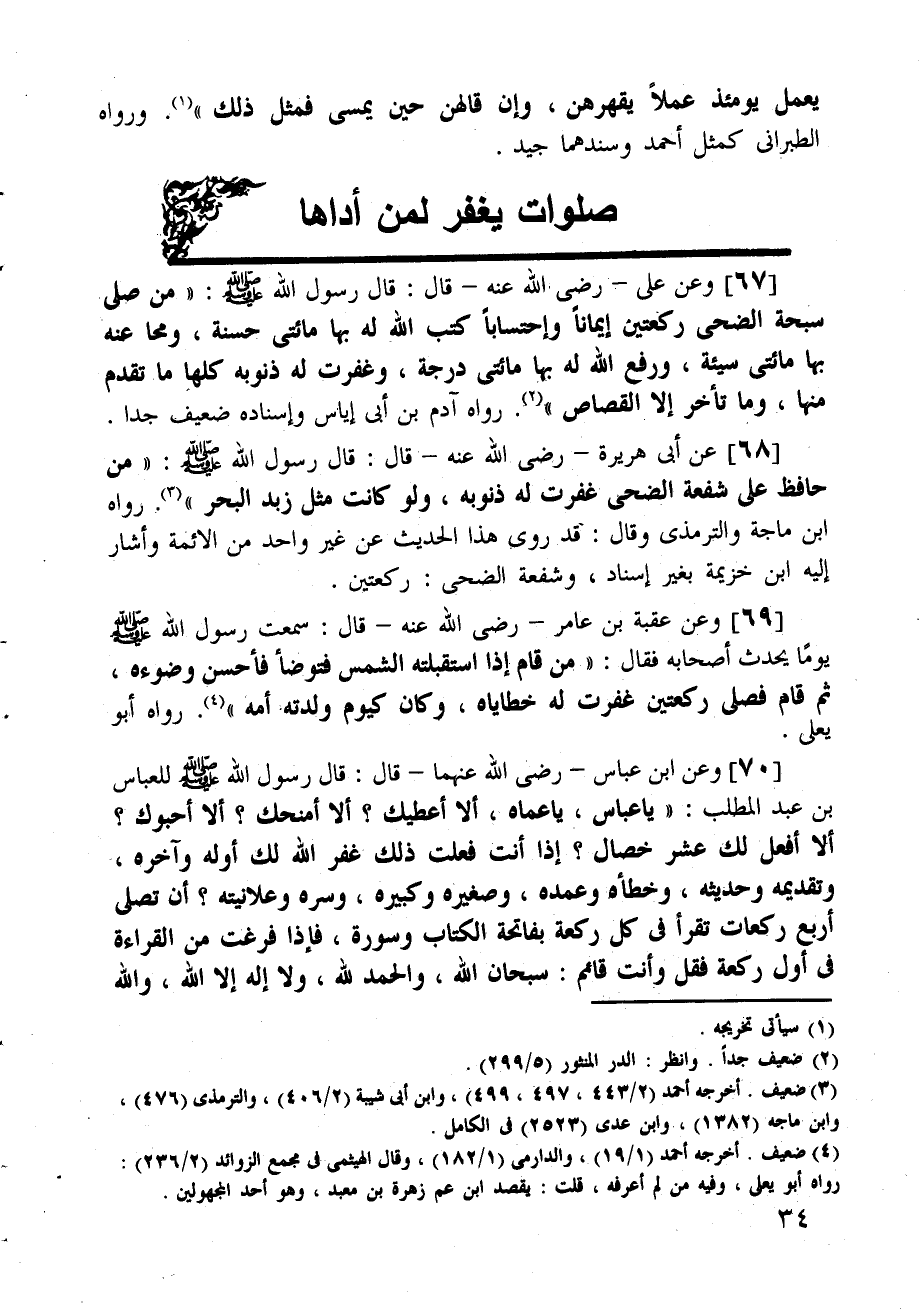 يعمل يومئذ عملاً يقهرهن ، وإن قالهن حين يمسى فمثل ذلك »(١). ورواه
الطبرانى كمثل أحمد وسندهما جيد .
صلوات يغفر لمن أداها
[٦٧] وعن على – رضى الله عنه – قال : قال رسول الله ﷺ : « من صلى
سبحة الضحى ركعتين إيماناً وإحتساباً كتب الله له بها مائتى حسنة ، ومحا عنه
بها مائتى سيئة ، ورفع الله له بها مائتى درجة ، وغفرت له ذنوبه كلها ما تقدم
منها ، وما تأخر إلا القصاص »(٢). رواه آدم بن أبى إياس وإسناده ضعيف جدا .
[٦٨] عن أبى هريرة – رضى الله عنه – قال : قال رسول الله ﷺ : « من
حافظ على شفعة الضحى غفرت له ذنوبه ، ولو كانت مثل زبد البحر »(٣). رواه
ابن ماجة والترمذى وقال : قد روى هذا الحديث عن غير واحد من الائمة وأشار
إليه ابن خزيمة بغير إسناد ، وشفعة الضحى : ركعتين .
[٦٩] وعن عقبة بن عامر – رضى الله عنه – قال : سمعت رسول الله ﷺ
يومًا يحدث أصحابه فقال : « من قام إذا استقبلته الشمس فتوضأ فأحسن وضوءه ،
ثم قام فصلى ركعتين غفرت له خطاياه ، وكان كيوم ولدته أمه »(٤). رواه أبو
يعلى .
[٧٠] وعن ابن عباس – رضى الله عنهما – قال : قال رسول الله ﷺ للعباس
بن عبد المطلب : « ياعباس ، ياعماه ، ألا أعطيك ؟ ألا أمنحك ؟ ألا أحبوك ؟
ألا أفعل لك عشر خصال ؟ إذا أنت فعلت ذلك غفر الله لك أوله وآخره ،
وتقديمه وحديثه ، وخطأه وعمده ، وصغيره وكبيره ، وسره وعلانيته ؟ أن تصلى
أربع ركعات تقرأ فى كل ركعة بفاتحة الكتاب وسورة ، فإذا فرغت من القراءة
فى أول ركعة فقل وأنت قائم : سبحان الله ، والحمد لله ، ولا إله إلا الله ، والله
(١) سيأتى تخريجه .
(٢) ضعيف جداً . وانظر : الدر المنثور (٢٩٩/٥) .
(٣) ضعيف . أخرجه أحمد (٤٤٣/٢ ، ٤٩٧ ، ٤٩٩) ، وابن أبى شيبة (٤٠٦/٢) ، والترمذى (٤٧٦) ،
وابن ماجه (١٣٨٢) ، وابن عدى (٢٥٢٣) فى الكامل .
(٤) ضعيف . أخرجه أحمد (١٩/١) ، والدارمى (١٨٢/١) ، وقال الهيثمى فى مجمع الزوائد (٢٣٦/٢) :
رواه أبو يعلى ، وفيه من لم أعرفه ، قلت : يقصد ابن عم زهرة بن معبد ، وهو أحد المجهولين .
٣٤